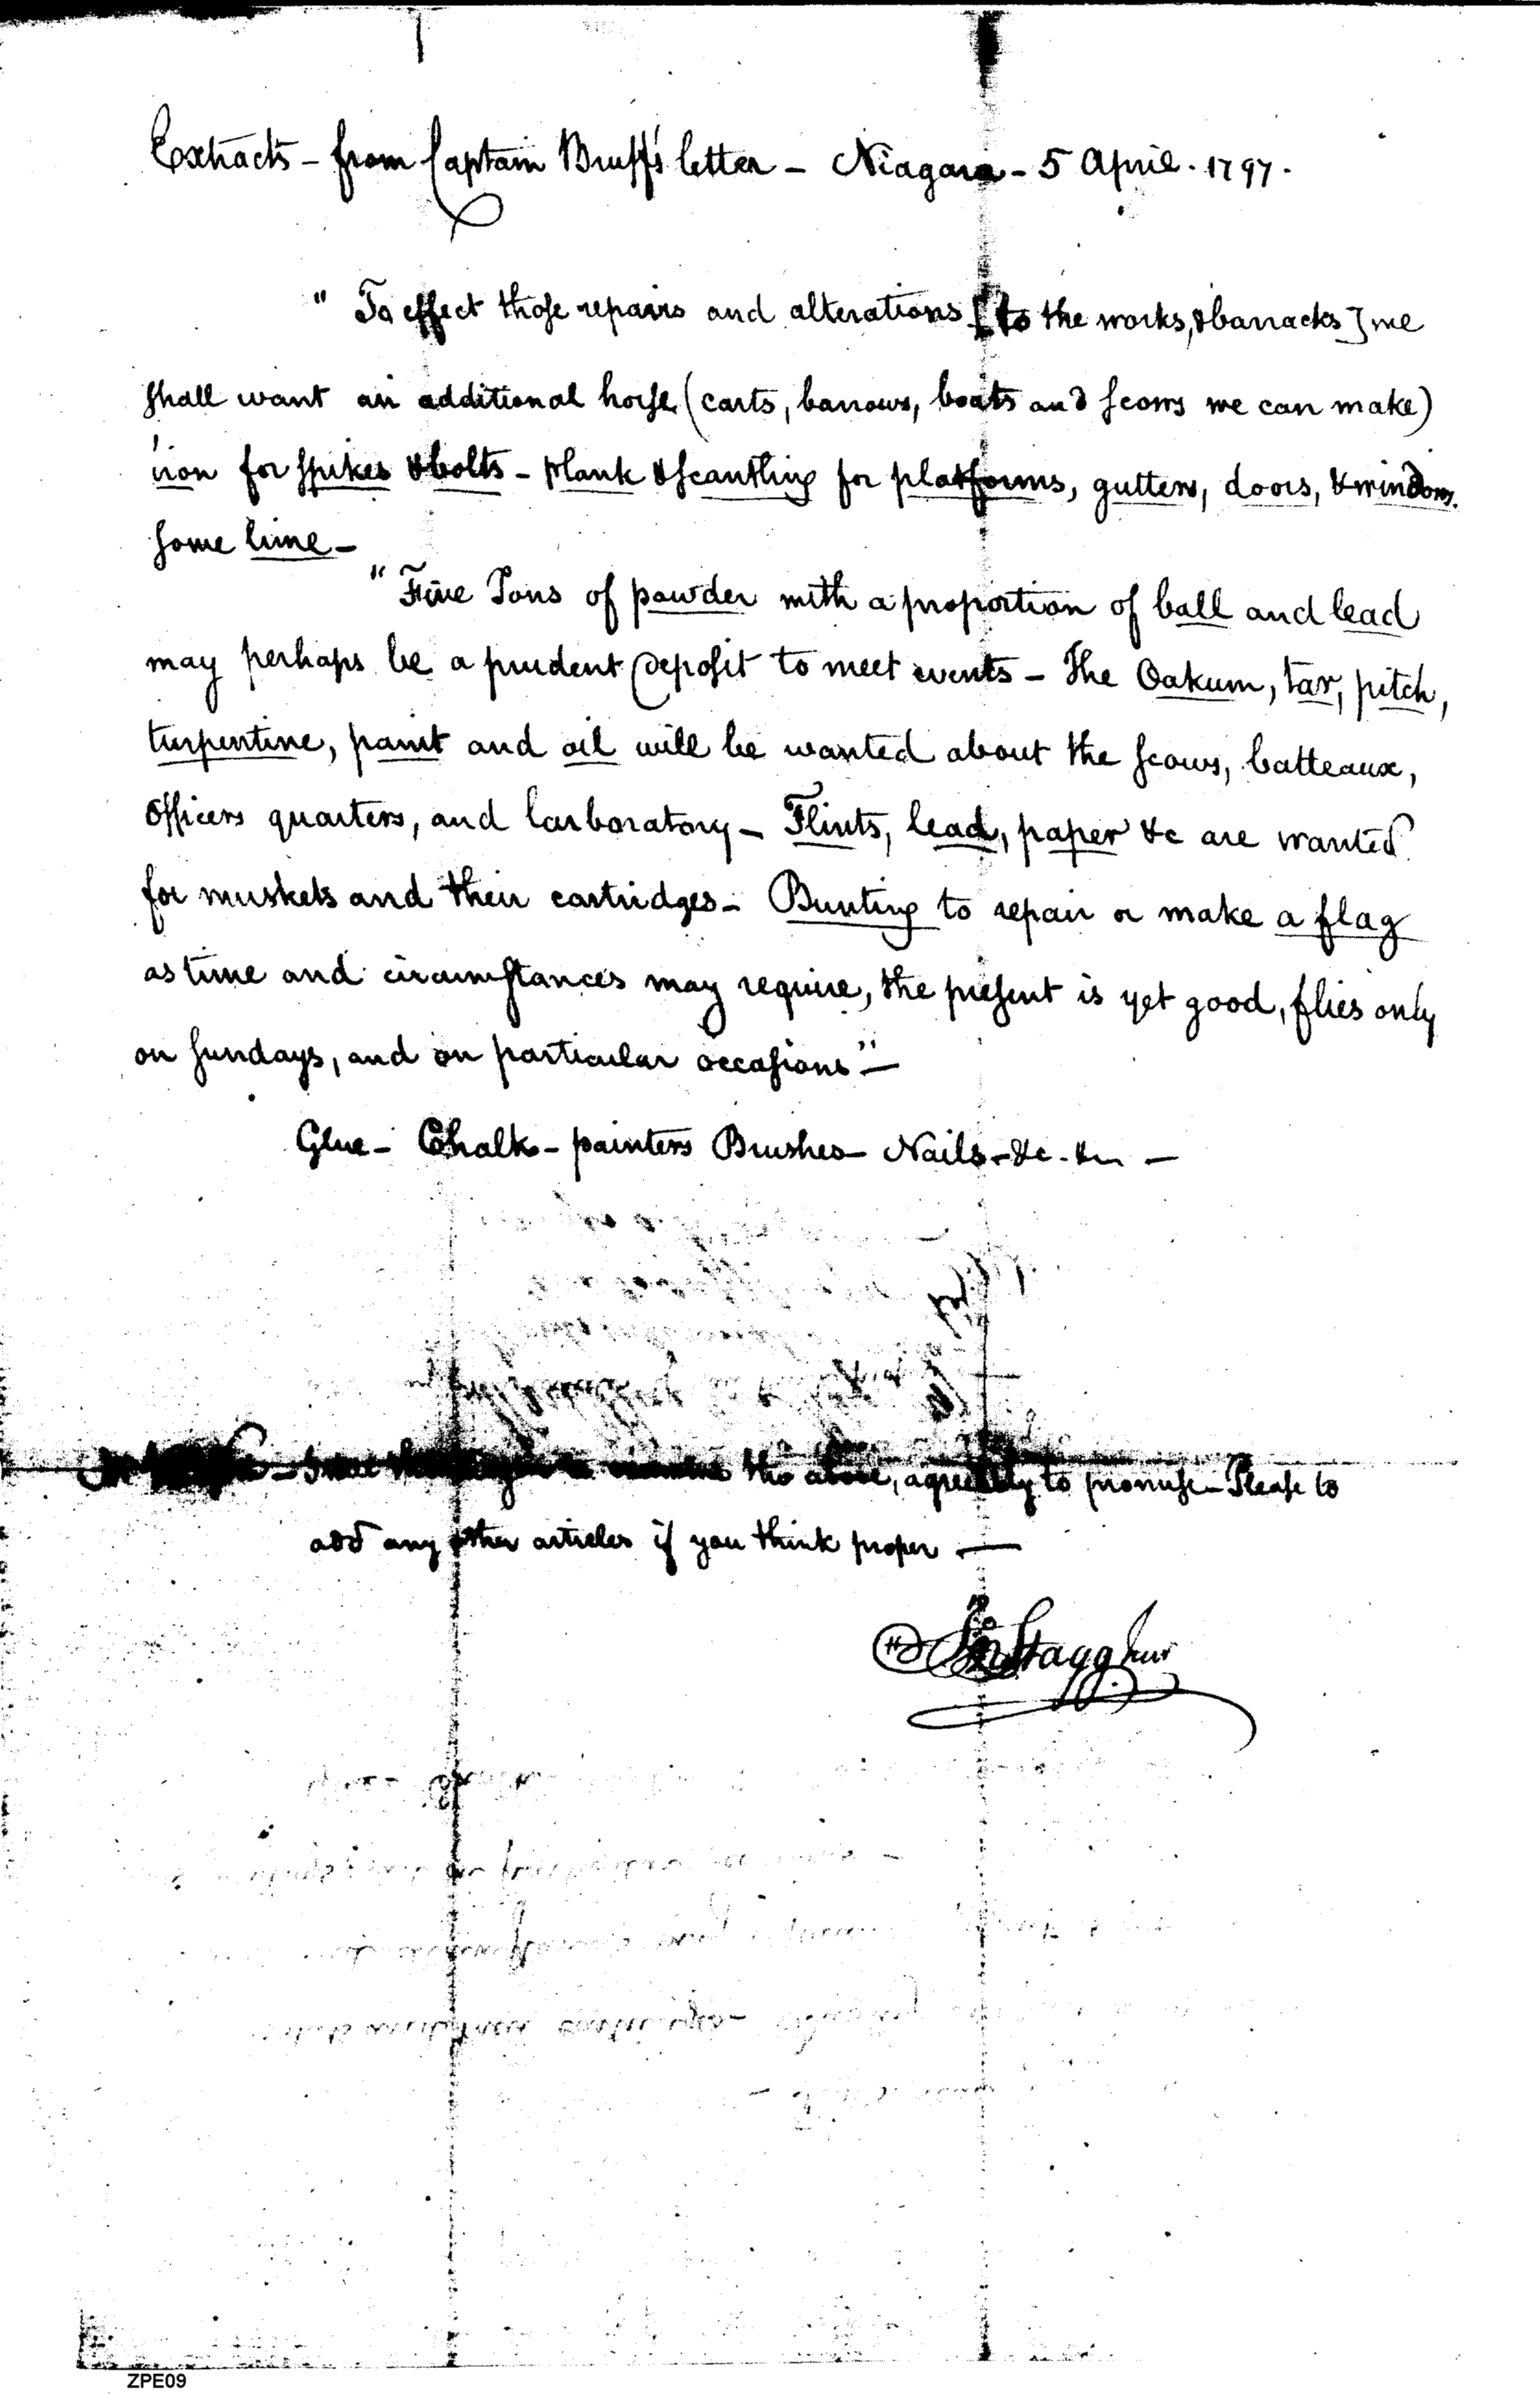 Extracts - from Captain Bruff's letter - Niagara - 5 April. 1797.
" To effect those repairs and alterations [to the works, & barracks] we
shall want an additional horse (carts, barrows, boats and scows we can make)
iron for spikes & bolts - plank & scantling for platforms, gutters, doors, & windows.
some lime -
" Five Tons of powder with a proportion of ball and lead
may perhaps be a prudent deposit to meet events - The Oakum, tar, pitch,
turpentine, paint and oil will be wanted about the scows, batteaux,
officers quarters, and larboratory - Flints, lead, paper &c are wanted
for muskets and their cartridges - Bunting to repair or make a flag
as time and circumstances may require, the present is yet good, flies only
on sundays, and on particular occasions" -
Glue - Chalk - painters Brushes - Nails - &c. &c -
the above, agreeably to promise - Please to
add any other articles if you think proper -
Jn Stagg Junr
ZPE09